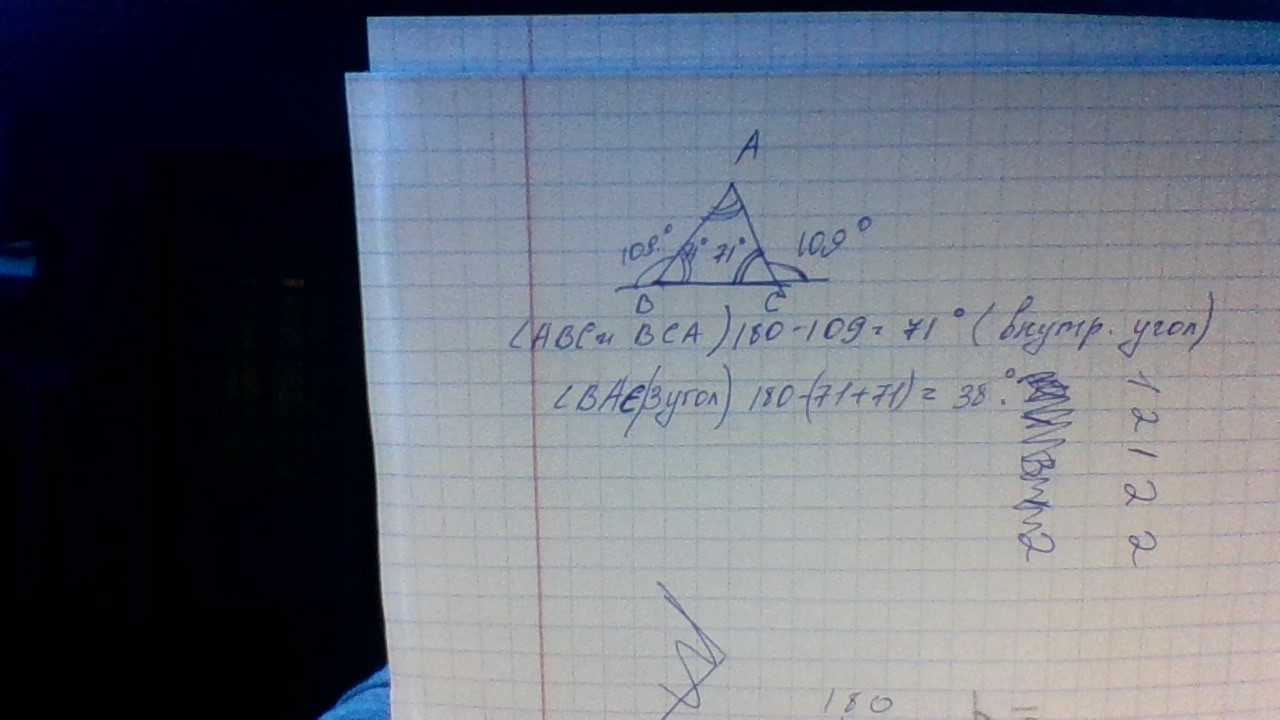 A
109° 71° 71° 109°
B C
∠ABC и BCA) 180-109= 71° (внутр. угол)
∠BAC(3угол) 180-(71+71)= 38°.
1 2 1 2 2
2
180